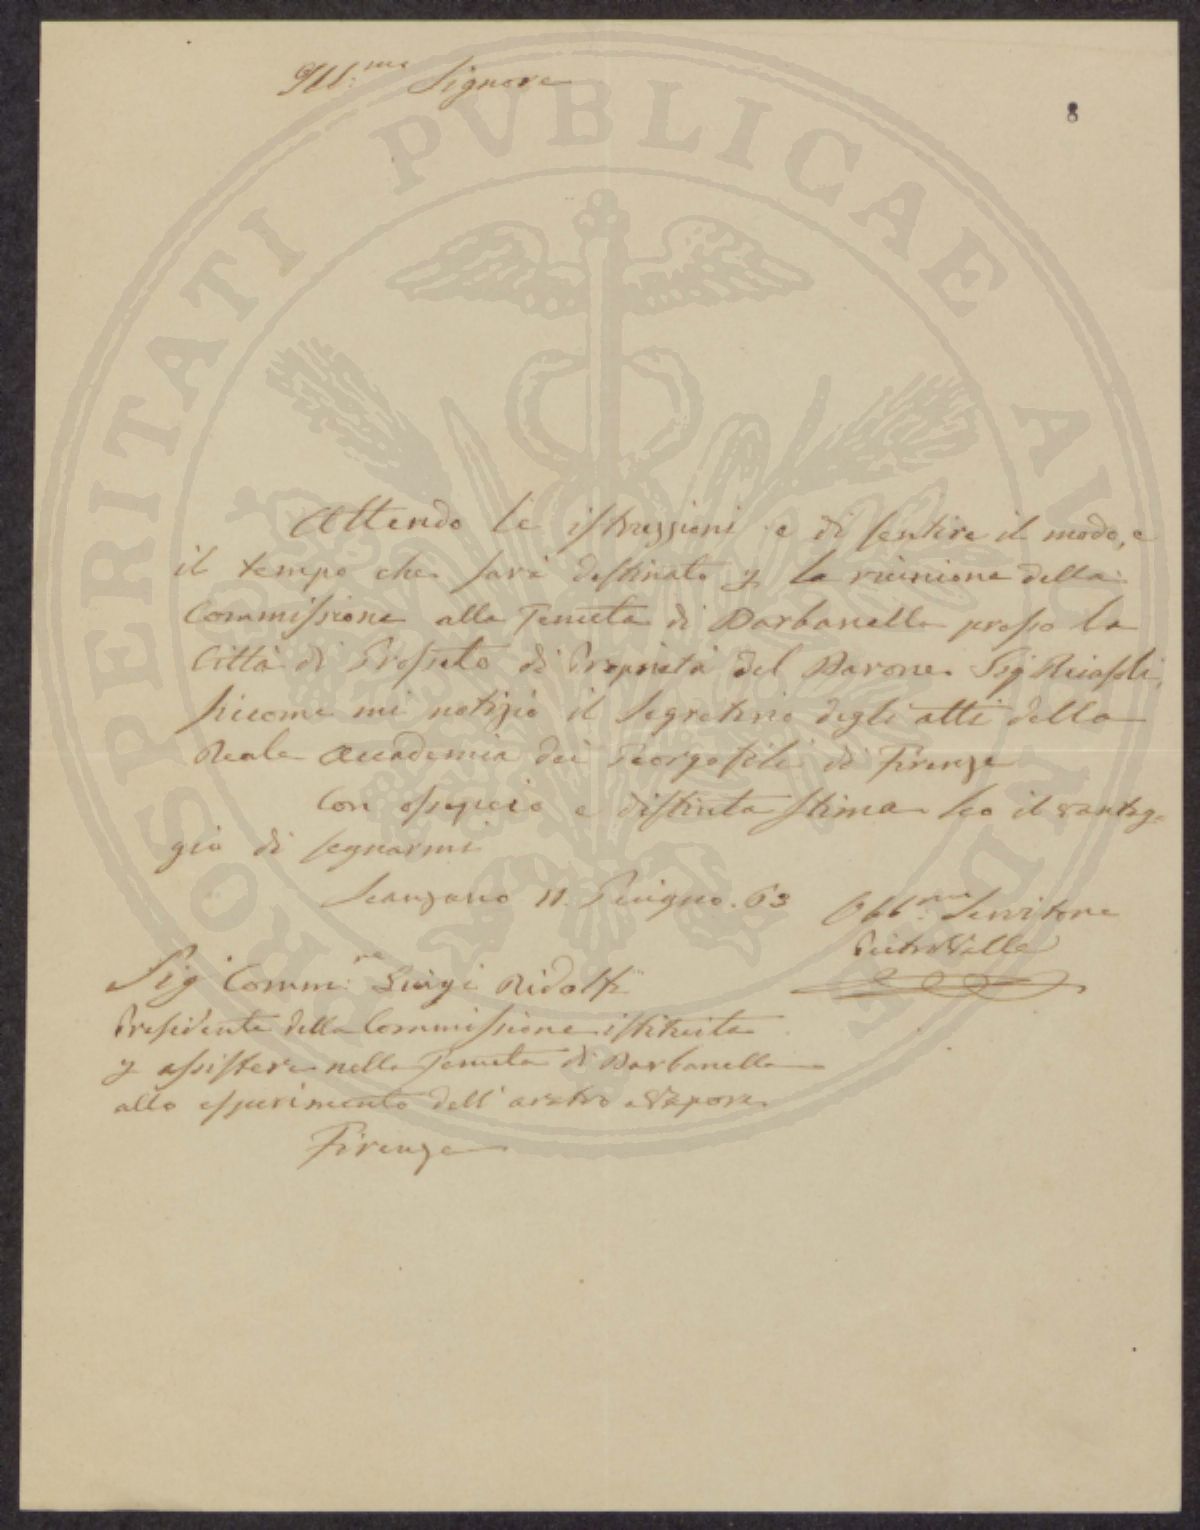 Ill:mo Signore
8
Attendo le istruzzioni e di sentire il modo, e
il tempo che sarà destinato p la riunione della
Commissione alla Tenuta di Barbanella presso la
Città di Grosseto di Proprietà del Barone Sig Ricasoli,
siccome mi notiziò il Segretario degli atti della
Reale Accademia dei Georgofili di Firenze
Con ossequio e distinta stima ho il vantag-
gio di segnarmi
Scanzano 11. Giugno. 63
Obb:mo Servitore
Pietro Valle
Sig Comm:re Luigi Ridolfi
Presidente della Commissione istituita
p assistere nella Tenuta di Barbanella
allo esperimento dell' aratro a Vapore
Firenze
PROSPERITATI PVBLICAE AVGENDAE